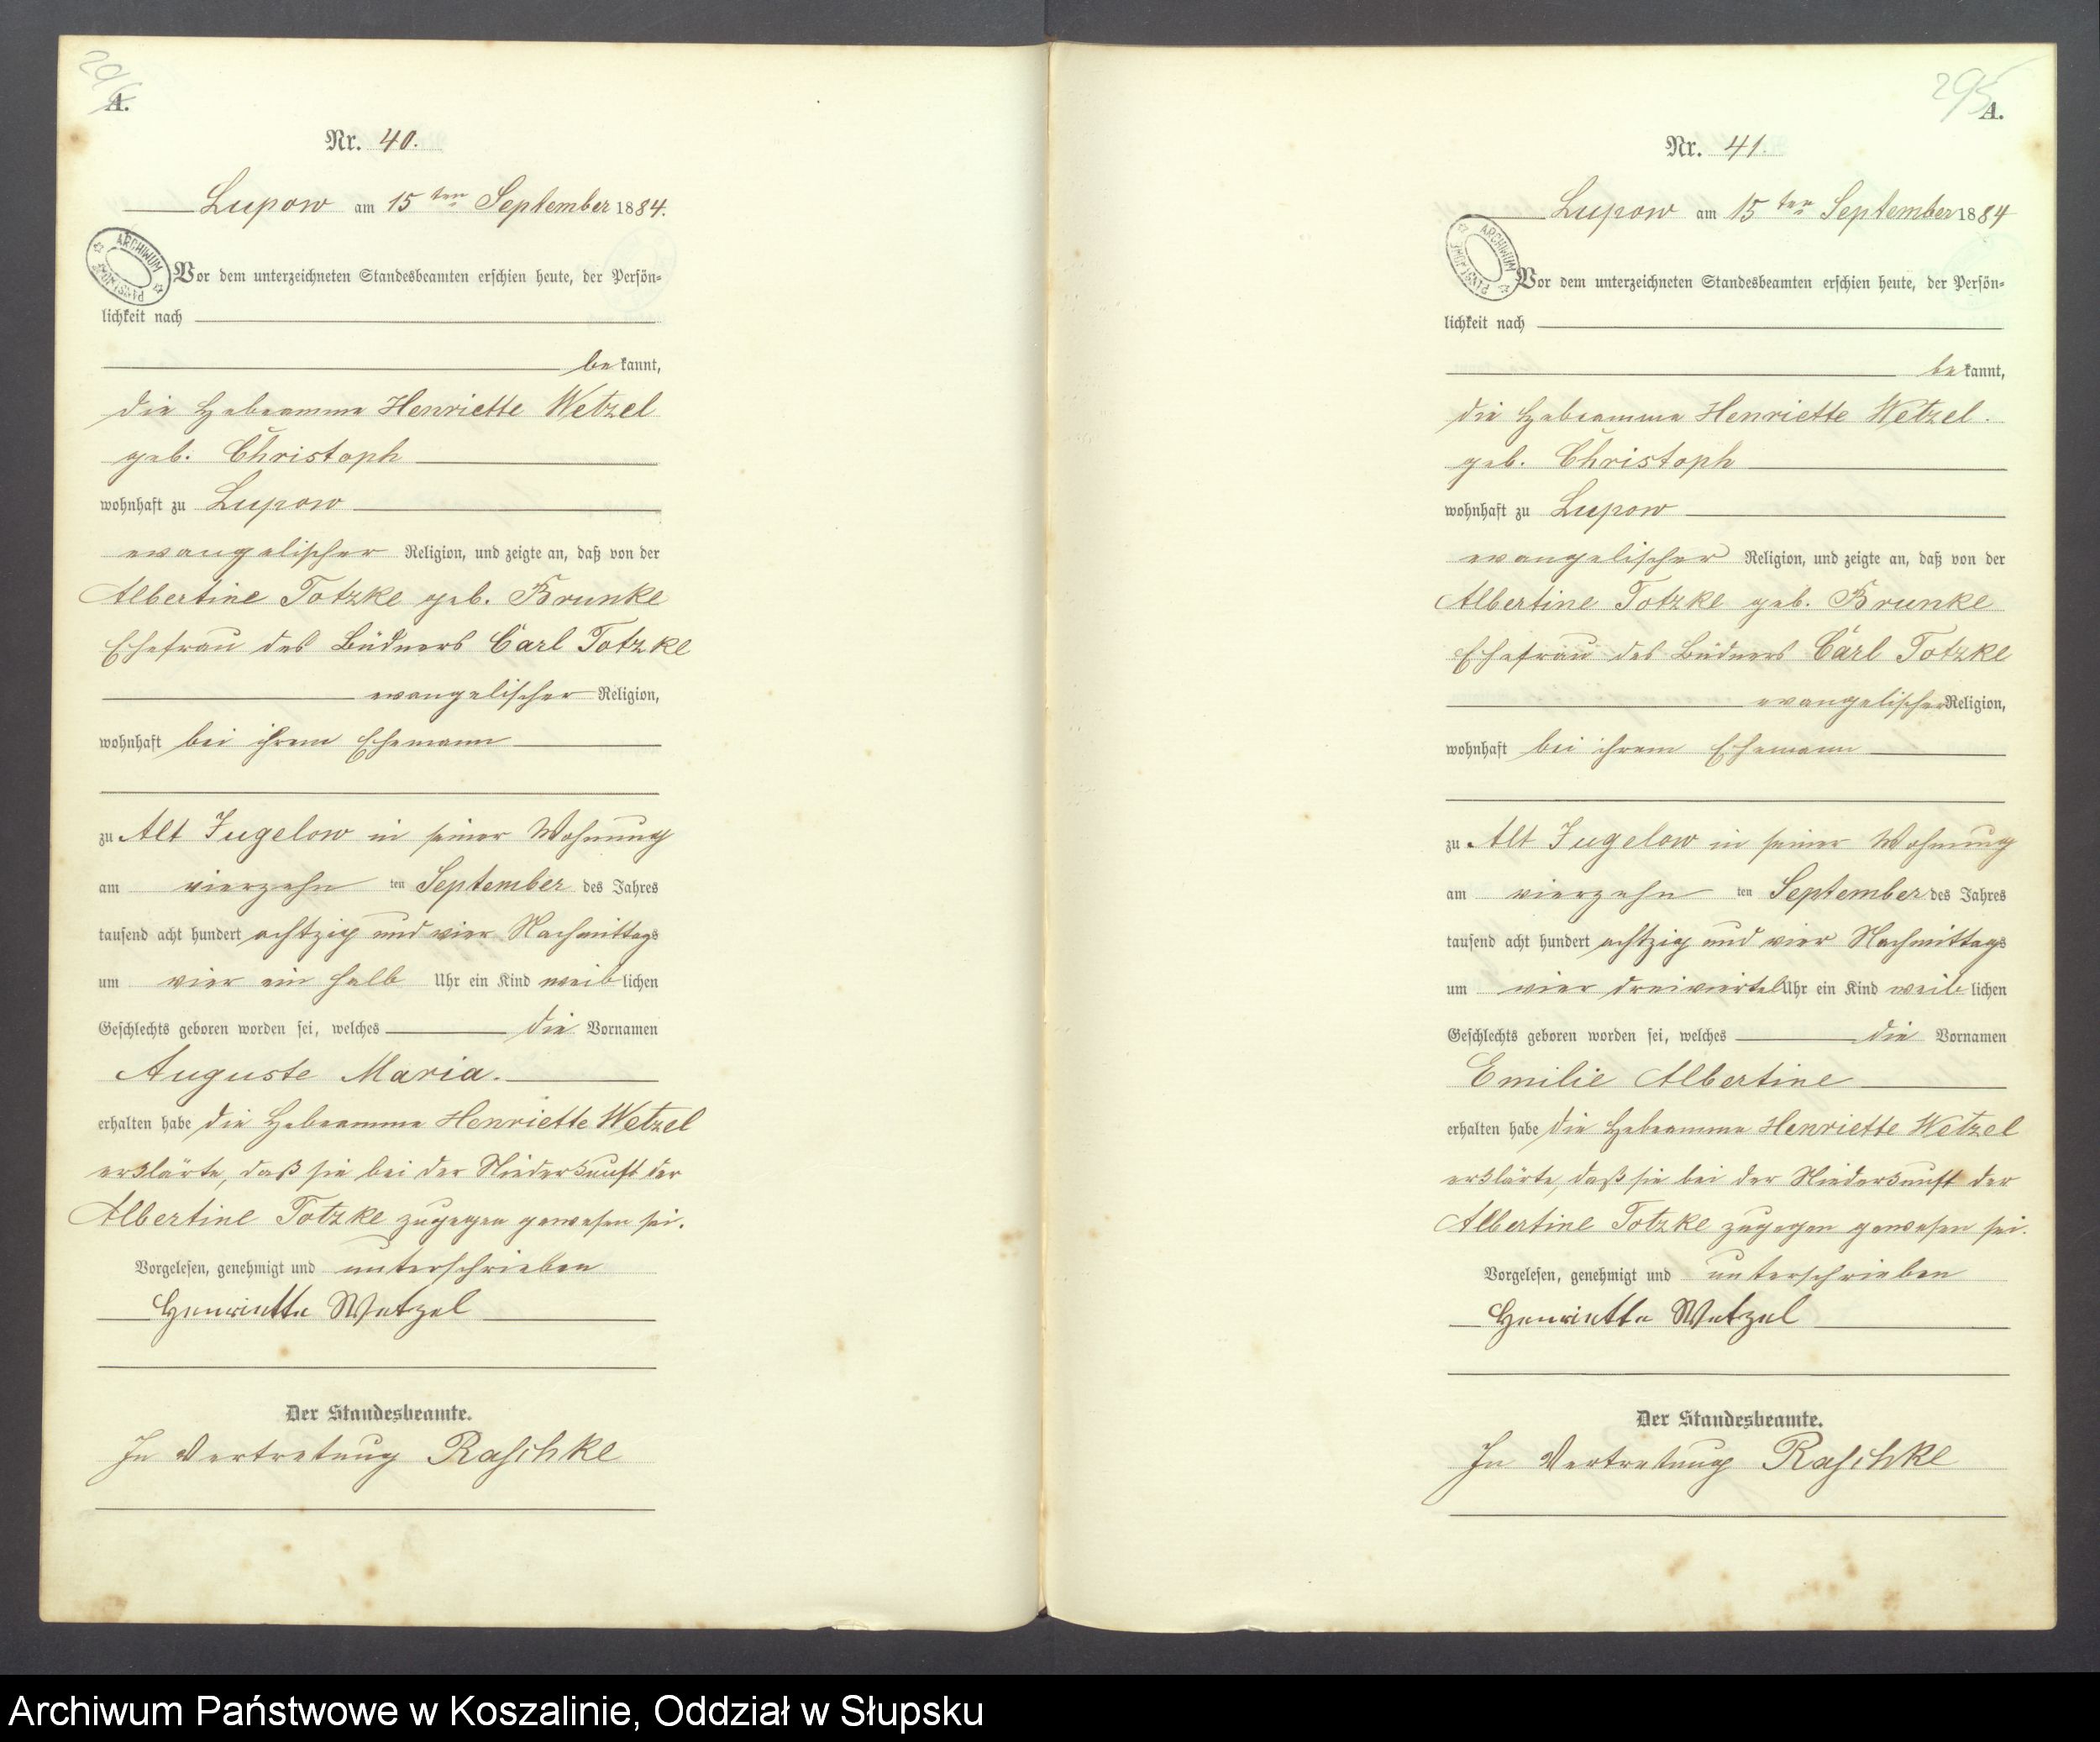 A.
Nr. 40.
Lupow am 15 ten September 1884.
ARCHIWUM
Vor dem unterzeichneten Standesbeamten erschien heute, der Persön-
lichkeit nach
bekannt,
die Hebeamme Henriette Wetzel
geb. Christoph
wohnhaft zu Lupow
evangelischer Religion, und zeigte an, daß von der
Albertine Totzke geb. Brunke
Ehefrau des Büdners Carl Totzke
evangelischer Religion,
wohnhaft bei ihrem Ehemann
zu Alt Jugelow in seiner Wohnung
am vierzehn ten September des Jahres
tausend acht hundert achtzig und vier Nachmittags
um vier ein halb Uhr ein Kind weiblichen
Geschlechts geboren worden sei, welches die Vornamen
Auguste Maria.
erhalten habe die Hebeamme Henriette Wetzel
erklärte, daß sie bei der Niederkunft der
Albertine Totzke zugegen gewesen sei.
Vorgelesen, genehmigt und unterschrieben
Henriette Wetzel
Der Standesbeamte.
In Vertretung Raschke
295
A.
Nr. 41.
Lupow am 15 ten September 1884
ARCHIWUM
Vor dem unterzeichneten Standesbeamten erschien heute, der Persön-
lichkeit nach
bekannt,
die Hebeamme Henriette Wetzel.
geb. Christoph
wohnhaft zu Lupow
evangelischer Religion, und zeigte an, daß von der
Albertine Totzke geb. Brunke
Ehefrau des Büdners Carl Totzke
evangelischer Religion,
wohnhaft bei ihrem Ehemann
zu Alt Jugelow in seiner Wohnung
am vierzehn ten September des Jahres
tausend acht hundert achtzig und vier Nachmittags
um vier dreiviertel Uhr ein Kind weiblichen
Geschlechts geboren worden sei, welches die Vornamen
Emilie Albertine
erhalten habe die Hebeamme Henriette Wetzel
erklärte, daß sie bei der Niederkunft der
Albertine Totzke zugegen gewesen sei.
Vorgelesen, genehmigt und unterschrieben
Henriette Wetzel
Der Standesbeamte.
In Vertretung Raschke
Archiwum Państwowe w Koszalinie, Oddział w Słupsku